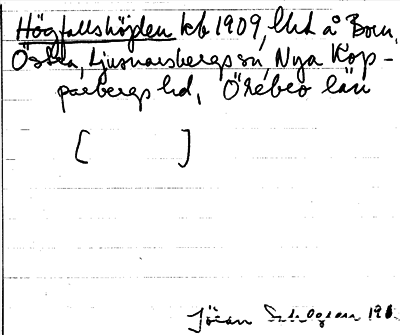 Högfallshöjden kb 1909, lhd å Born,
Östra, Ljusnarsbergs sn, Nya Kop-
parbergs hd, Örebro län
[ ]
Jöran